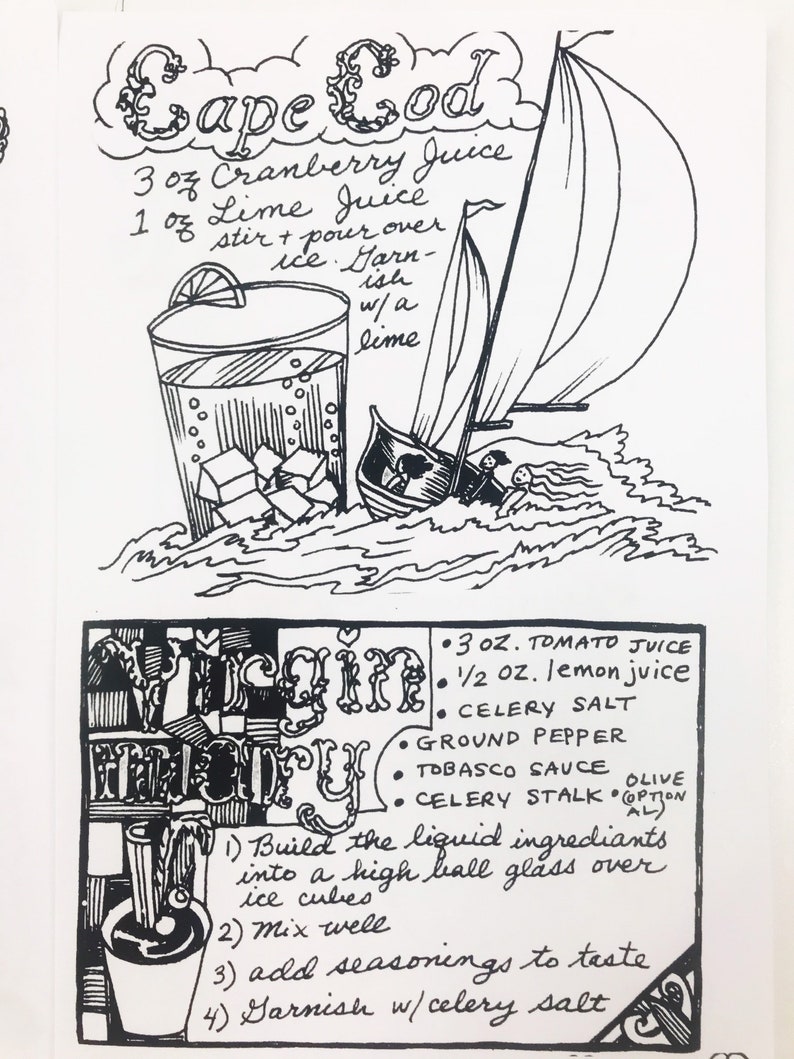 Cape Cod
3 oz Cranberry Juice
1 oz Lime Juice
stir + pour over
ice. Garn-
ish
w/ a
lime
Virgin
mary
• 3 OZ. TOMATO JUICE
• 1/2 OZ. lemon juice
• CELERY SALT
• GROUND PEPPER
• TOBASCO SAUCE
• CELERY STALK • OLIVE
(OPTION
AL)
1) Build the liquid ingrediants
into a high ball glass over
ice cubes
2) Mix well
3) add seasonings to taste
4) Garnish w/ celery salt